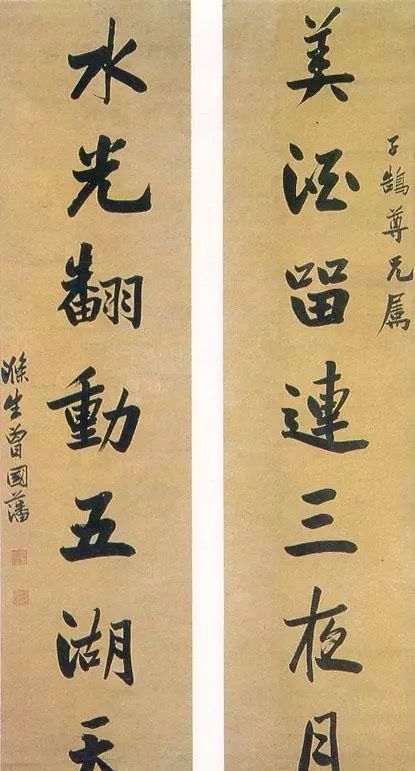 子鶴尊兄属
美酒留連三夜月
水光翻動五湖天
滌生曾國藩